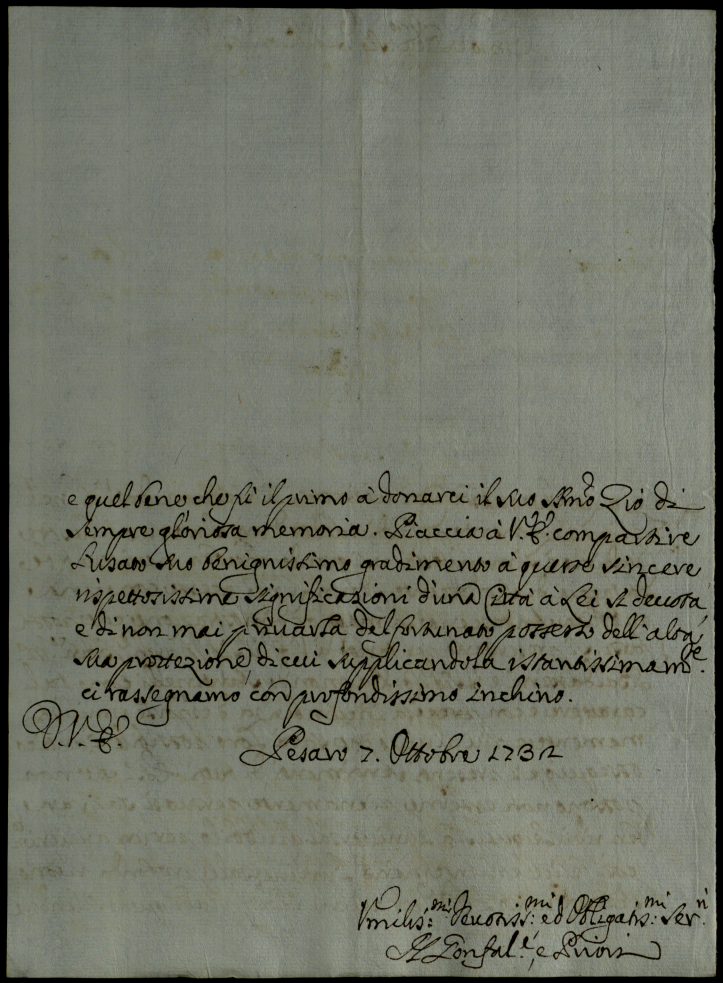 e quel bene che fù il primo à donarci il suo Smõ Zio di
sempre gloriosa memoria. Piaccia à V. E. compartire
l'usato suo benignissimo gradimento à queste sincere
rispettosissime significazioni d'una Città à Lei sì devota,
e di non mai privarla del fortunato possesso dell'alta
sua protezione, di cui supplicandola istantissimam.e
ci rassegnamo con profondissimo inchino.
D. V. E.
Pesaro 7. Ottobre 1732
Vmilis:mi Devotiss:mi ed Obligatis:mi Ser.ri
Il Gonfal.e, e Priori